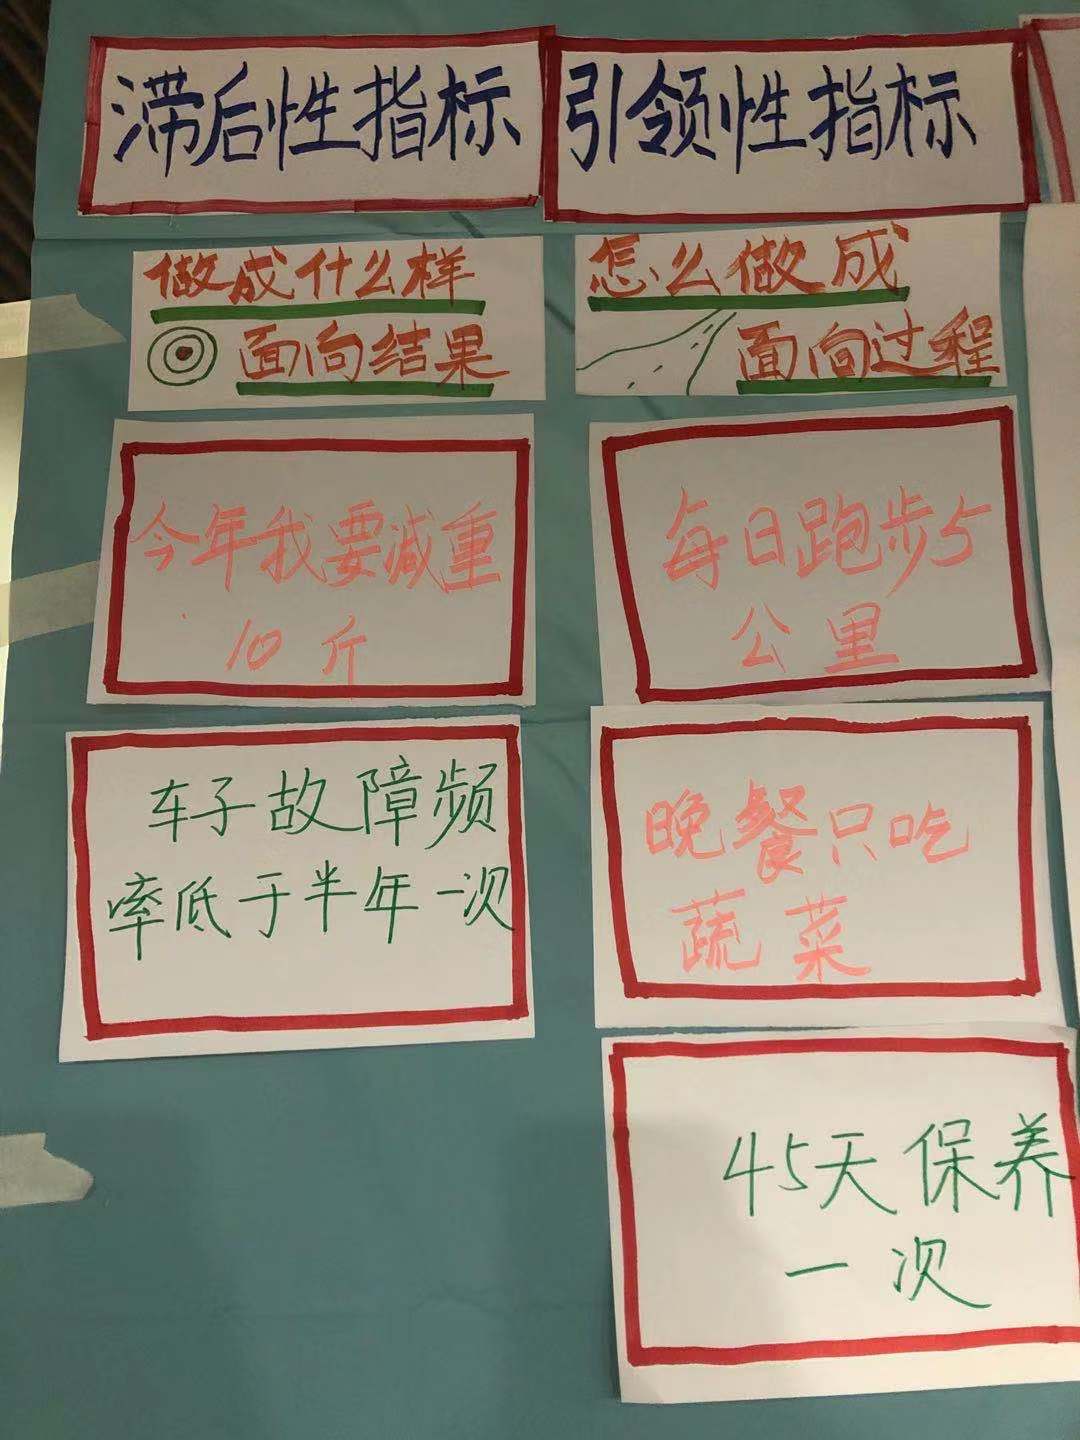 滞后性指标
引领性指标
做成什么样
面向结果
怎么做成
面向过程
今年我要减重
10斤
每日跑步5
公里
车子故障频
率低于半年一次
晚餐只吃
蔬菜
45天保养
一次